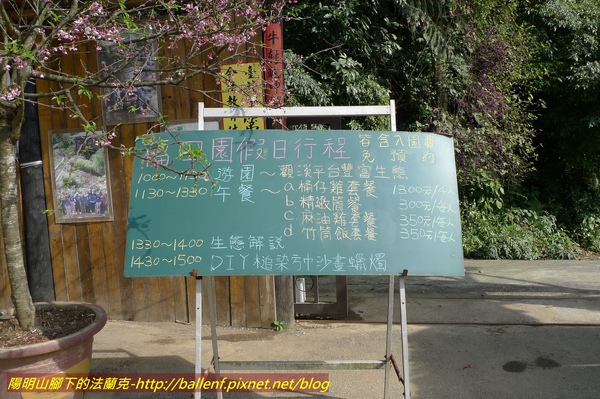 園假日行程
若含入園費
免預約
1000~ 遊園~觀溪平台豐富生態
1130~1330 午餐~a桶仔雞套餐 1300元/4人
b精緻簡餐 300元/1人
c麻油雞套餐 350元/1人
d竹筒飯套餐 350元/1人
1330~1400 生態解說
1430~1500 DIY植染 沙畫蠟燭
陽明山腳下的法蘭克-http://ballenf.pixnet.net/blog